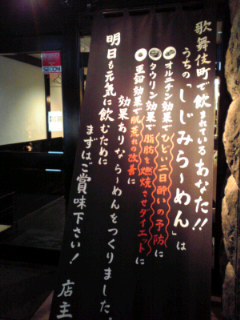 歌舞伎町で飲まれているあなた!!
うちの「しじみらーめん」は
オルニチン効果でひどい二日酔いの予防に
タウリン効果で脂肪を燃焼させダイエットに
亜鉛効果で肌荒れの改善に
効果ありならーめんをつくりました。
明日も元気に飲むために
まずはご賞味下さい!
店主